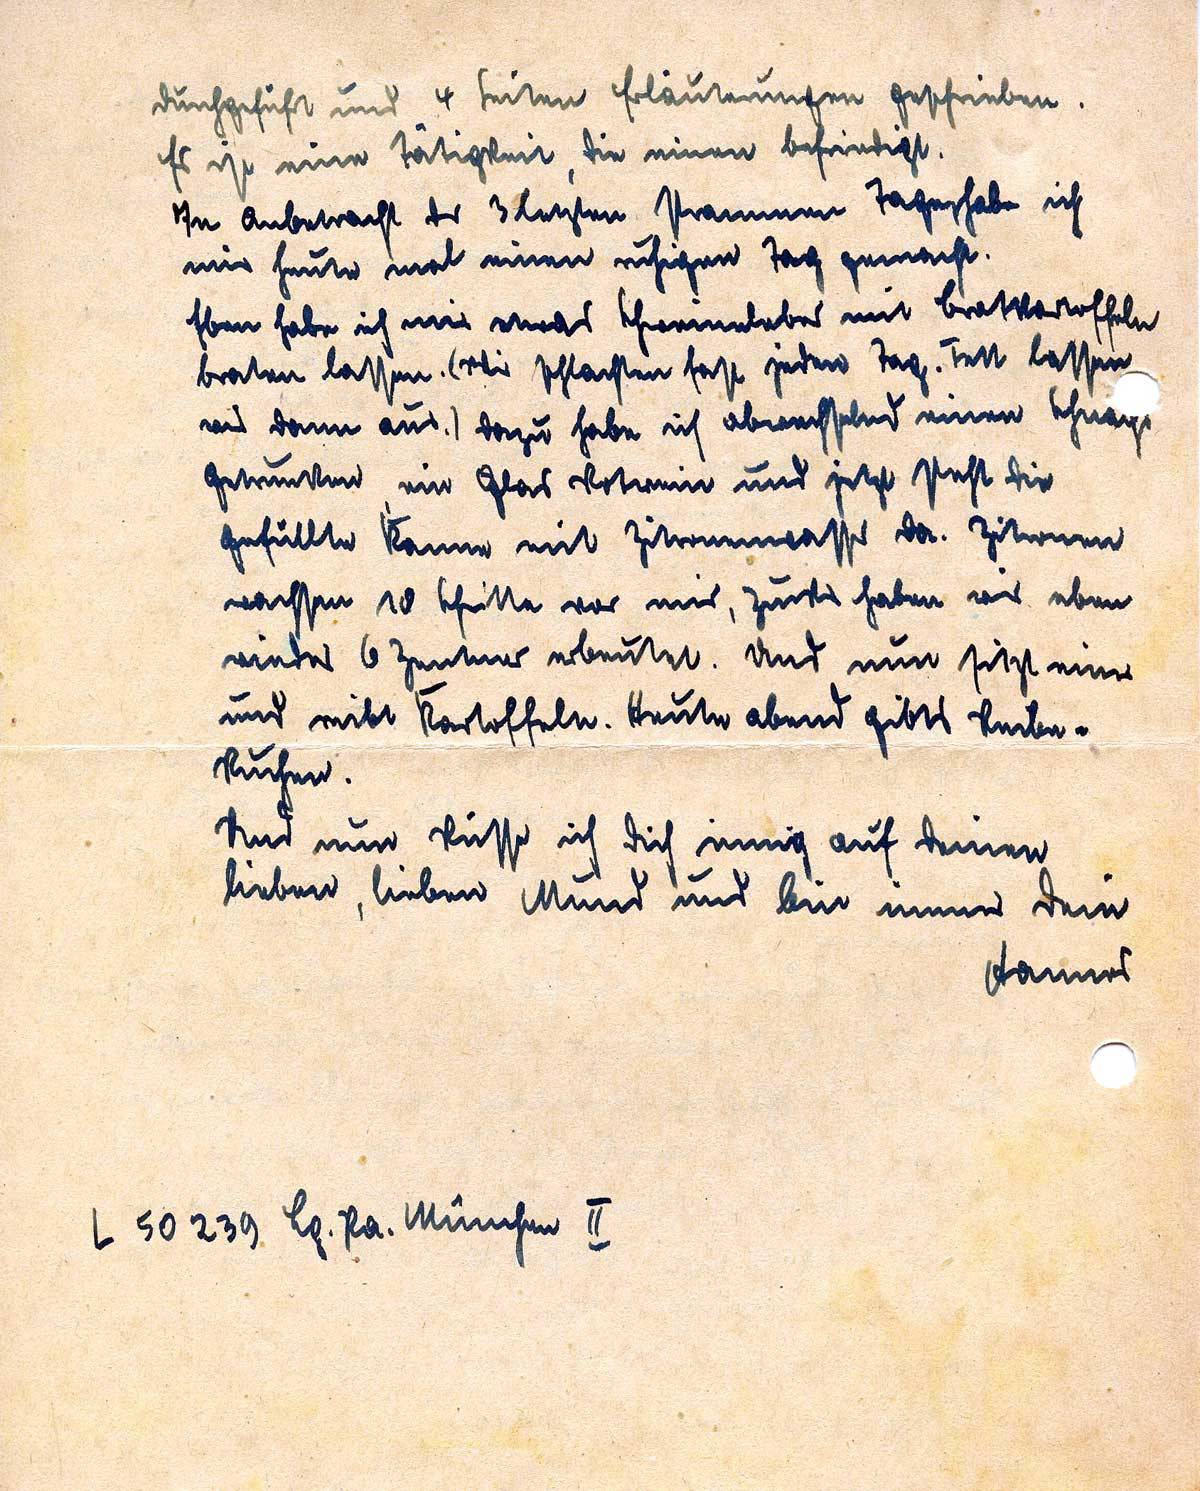 durchgeführt und 4 Seiten Erläuterungen geschrieben.
Es ist eine Tätigkeit, die einen befriedigt.
In Anbetracht der 3 letzten strammen Tage habe ich
mir heute mal einen ruhigen Tag gemacht.
Eben habe ich mir etwas Schweineleber mit Bratkartoffeln
braten lassen. (Wir schlachten fast jeden Tag. Fett lassen
wir dann aus.) Dazu habe ich abwechselnd einen Schnaps
getrunken, ein Glas Rotwein und jetzt steht die
gefüllte Kanne mit Zitronenwasser da. Zitronen
wachsen 10 Schritte vor mir, Zucker haben wir eben
wieder 6 Zentner erbeutet. Und nun sitzt einer
und reibt Kartoffeln. Heute abend gibts Reibe-
kuchen.
Und nun küsse ich Dich innig auf Deinen
lieben, lieben Mund und bin immer Dein
Hannes
L 50239 Lg. Pa. München II